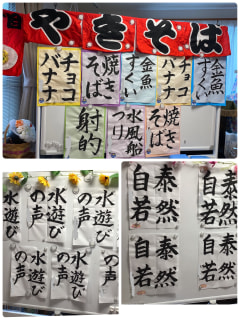 やきそば
チョコ
バナナ
焼き
そば
金魚
すくい
チョコ
バナナ
金魚
すくい
射的
水風船
つり
焼き
そば
水遊び
の声
水遊び
の声
水遊び
の声
水遊び
の声
泰然
自若
泰然
自若
泰然
自若
泰然
自若